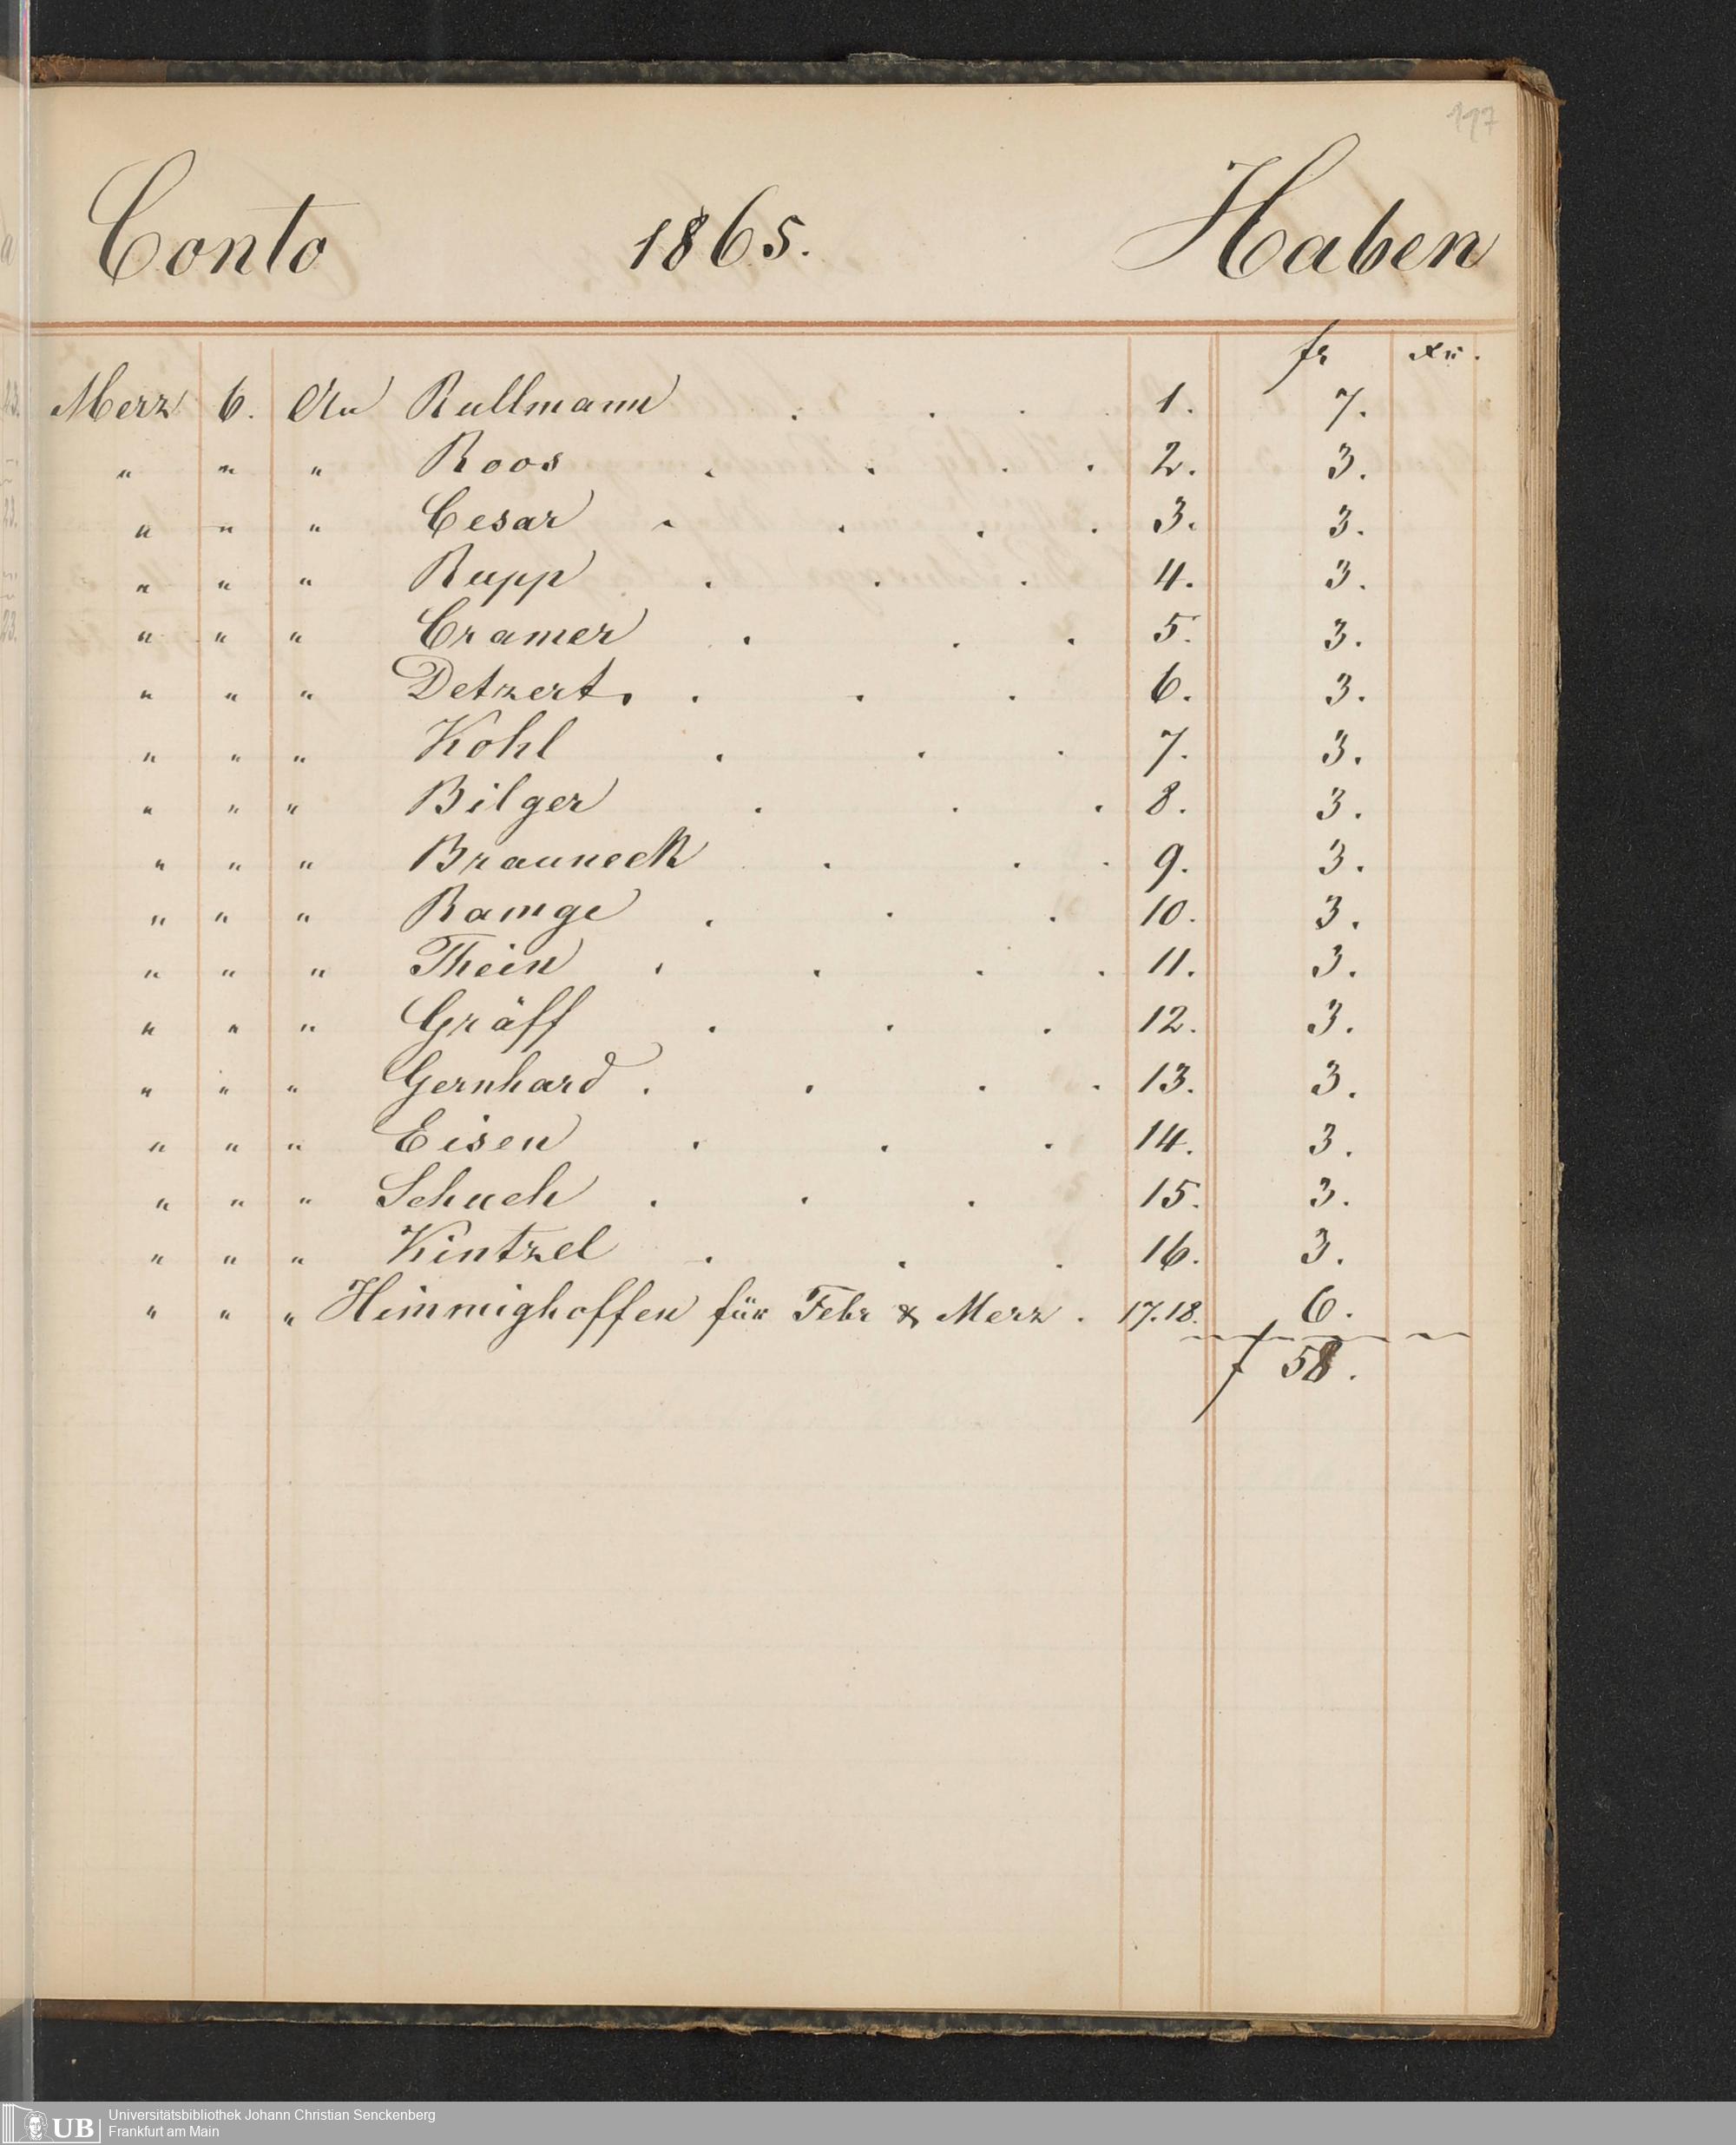 117
Conto 1865. Haben
fr xr.
Merz 6. An Rullmann . . . 1. 7.
" " " Roos . . . . 2. 3.
" " " Cesar . . . . 3. 3.
" " " Rupp . . . 4. 3.
" " " Cramer . . . 5. 3.
" " " Detzert. . . . 6. 3.
" " " Kohl . . . 7. 3.
" " " Bilger . . . 8. 3.
" " " Brauneck . . . 9. 3.
" " " Ramge . . . 10. 3.
" " " Thein . . . . 11. 3.
" " " Gräff . . . 12. 3.
" " " Gernhard . . . . 13. 3.
" " " Eisen . . . 14. 3.
" " " Schuch . . . 15. 3.
" " " Kintzel . . . 16. 3.
" " " Himmighoffen für Febr & Merz . 17.18. 6.
f 58.
UB Universitätsbibliothek Johann Christian Senckenberg
Frankfurt am Main